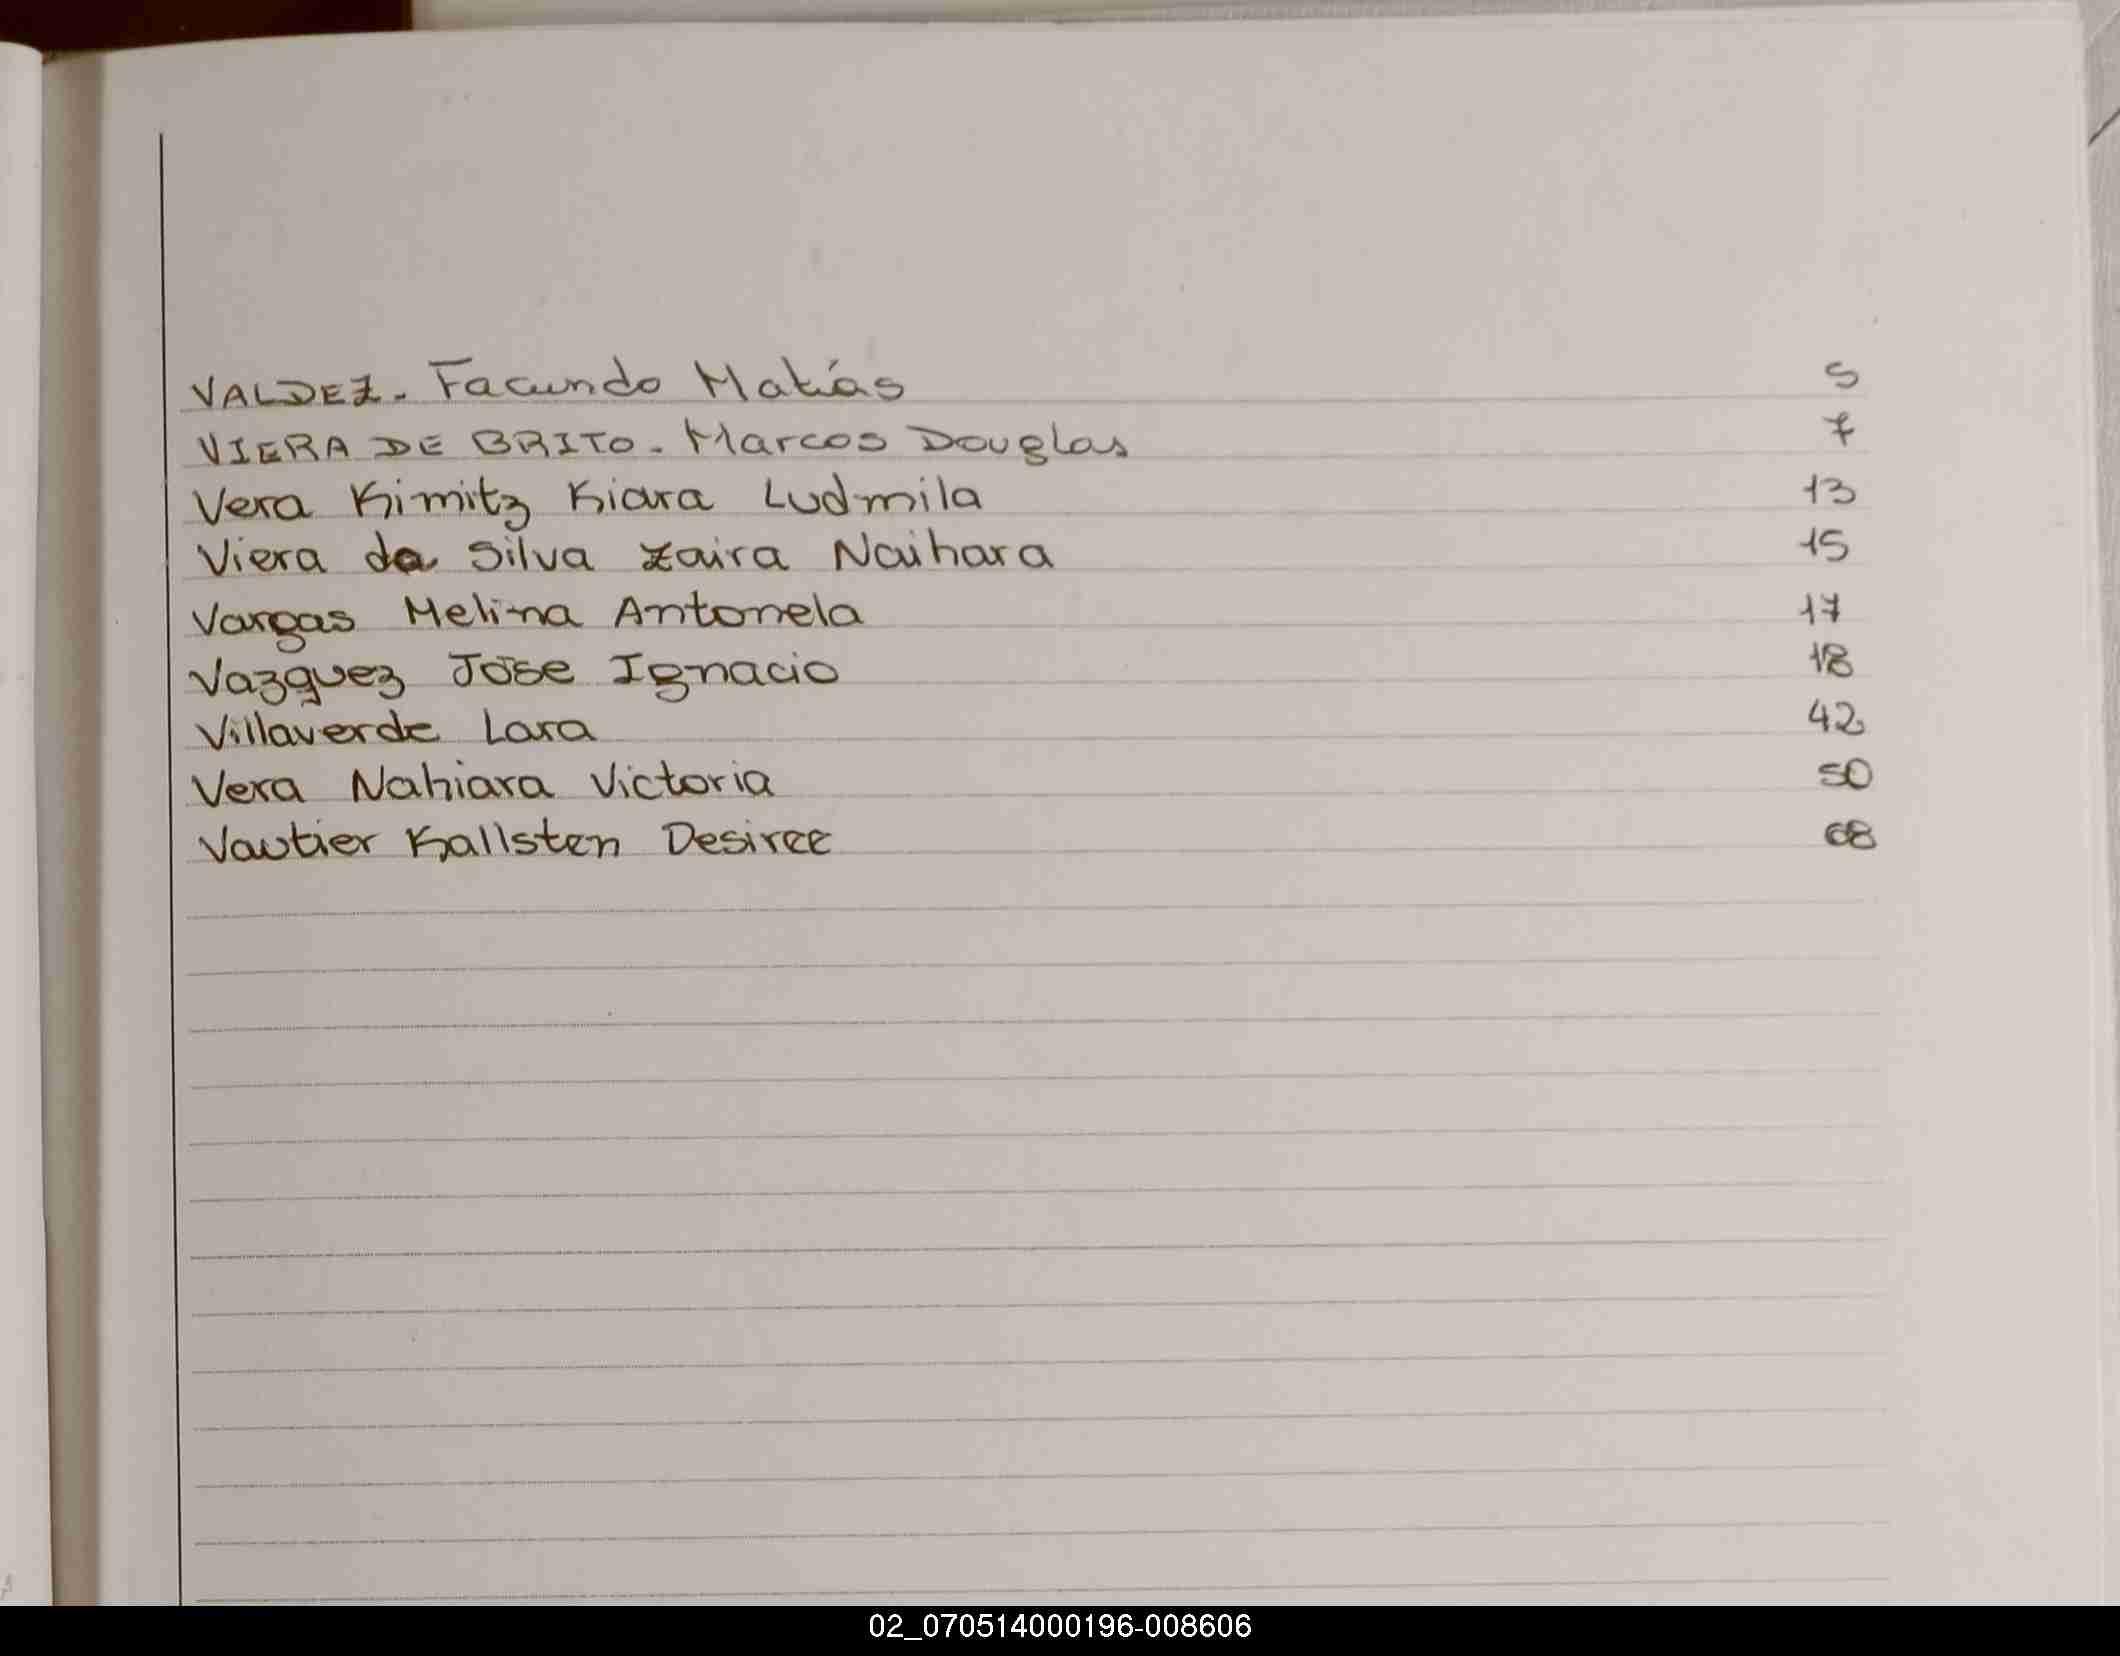 VALDEZ. Facundo Matías 5
VIERA DE BRITO. Marcos Douglas 7
Vera Kimitz Kiara Ludmila 13
Viera da Silva Zaira Naihara 15
Vargas Melina Antonela 17
Vazquez Jose Ignacio 18
Villaverde Lara 42
Vera Nahiara Victoria 50
Vautier Kallsten Desiree 68
02_070514000196-008606